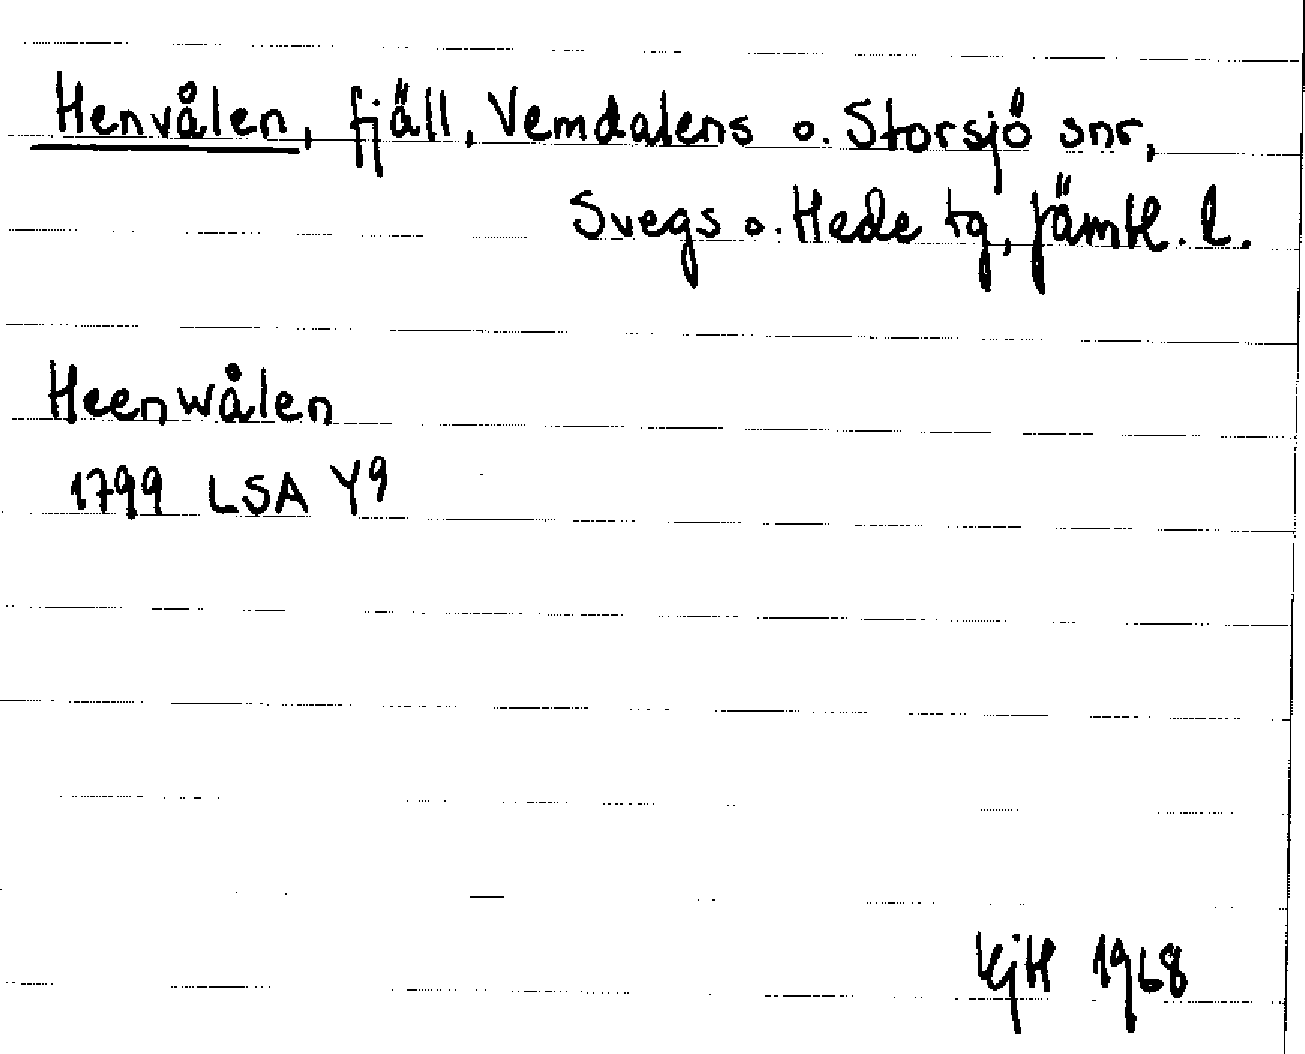 Henvålen, fjäll, Vemdalens o. Storsjö snr,
Svegs o. Hede tg, Jämtl. l.
Heenwålen
1799 LSA Y9
KjH 1968